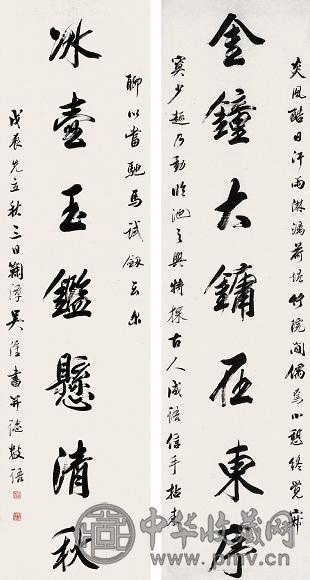 炎風酷日汗雨淋漓荷塘竹院間偶為小憩終覺寂
金鐘大鏞在東序
寞少趣乃動臨池之興特採古人成語信手拈來
聊以當馳馬試劍云爾
冰壺玉鑑懸清秋
戊辰先立秋三日鞠潭吳淦書并識數語
中华收藏网
www.pmcv.cn